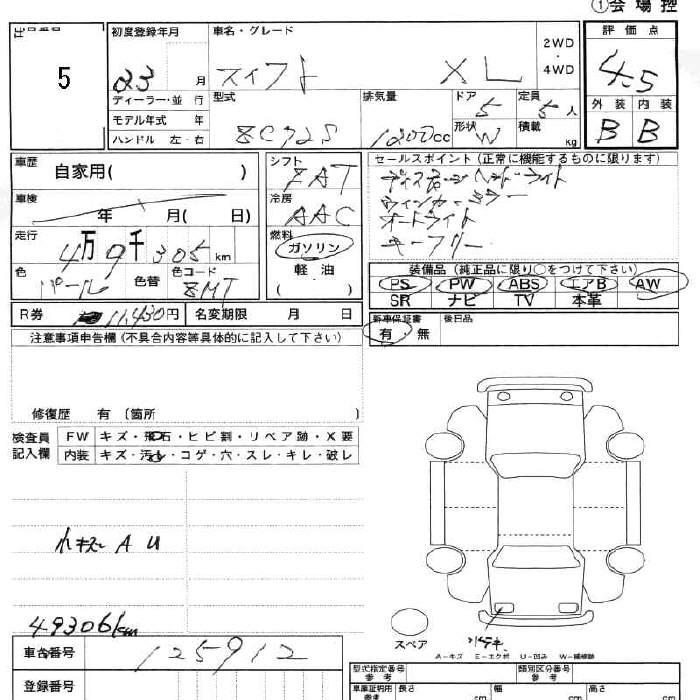 ①会場控
5
初度登録年月
23 月
車名・グレード
スイフト XL
2WD
・
4WD
評価点
4.5
ディーラー・並 行
モデル年式 年
ハンドル 左・右
型式
ZC72S
排気量
1200cc
ドア
5
定員
5人
形状
W
積載
kg
外装 内装
B B
車歴
自家用( )
車検
年 月( 日)
走行
4万9千305km
色
パール
色替
色コード
ZMT
シフト
FAT
冷房
AAC
燃料
ガソリン
軽油
( )
セールスポイント(正常に機能するものに限ります)
ウィンカーミラー
オートライト
キーフリー
装備品(純正品に限り○をつけて下さい)
PS PW ABS エアB AW
SR ナビ TV 本革
R券 11,430円
名変期限 月 日
新車保証書
有・無
後日品
注意事項申告欄(不具合内容等具体的に記入して下さい)
修復歴 有〔箇所 〕
検査員
記入欄
FW キズ・飛石・ヒビ割・リペア跡・X要
内装 キズ・汚れ・コゲ・穴・スレ・キレ・破レ
小キズ A U
49306km
スペア
A−キズ E−エクボ U−凹み W−補修跡
車台番号
125912
登録番号
型式指定番号
参考
類別区分番号
参考
車庫証明用
参考
長さ cm
幅 cm
高さ cm